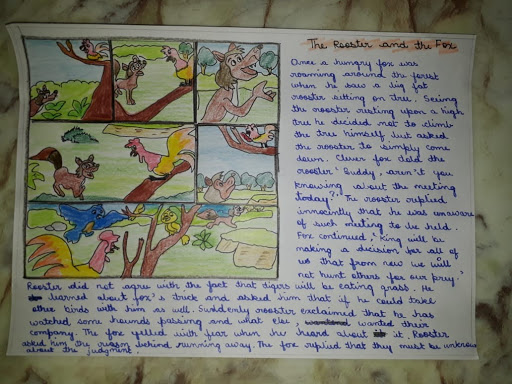 The Rooster and the Fox
Once a hungry fox was
roaming around the forest
when he saw a big fat
rooster sitting on tree. Seeing
the rooster resting upon a high
tree he decided not to climb
the tree himself Just asked
the rooster to simply come
down. Clever fox dold the
rooster "Buddy, aren't you
knowing about the meeting
today?" The rooster replied
innocintly that he was unaware
of such meeting to be held.
Fox continued, "King will be
making a decision for all of
us that from now we will
not hunt others for our prey."
Rooster did not agree with the fact that digers will be eating grass. He
learned about fox's truck and asked him that if he could take
other birds with him as well. Suddenly rooster exclaimed that he has
watched some hounds passing and what else, wanted their
company. The fox yelled with fear when he heard about it. Rooster
asked him the reason behind running away. The fox replied that they must be unknown
about the judgment.